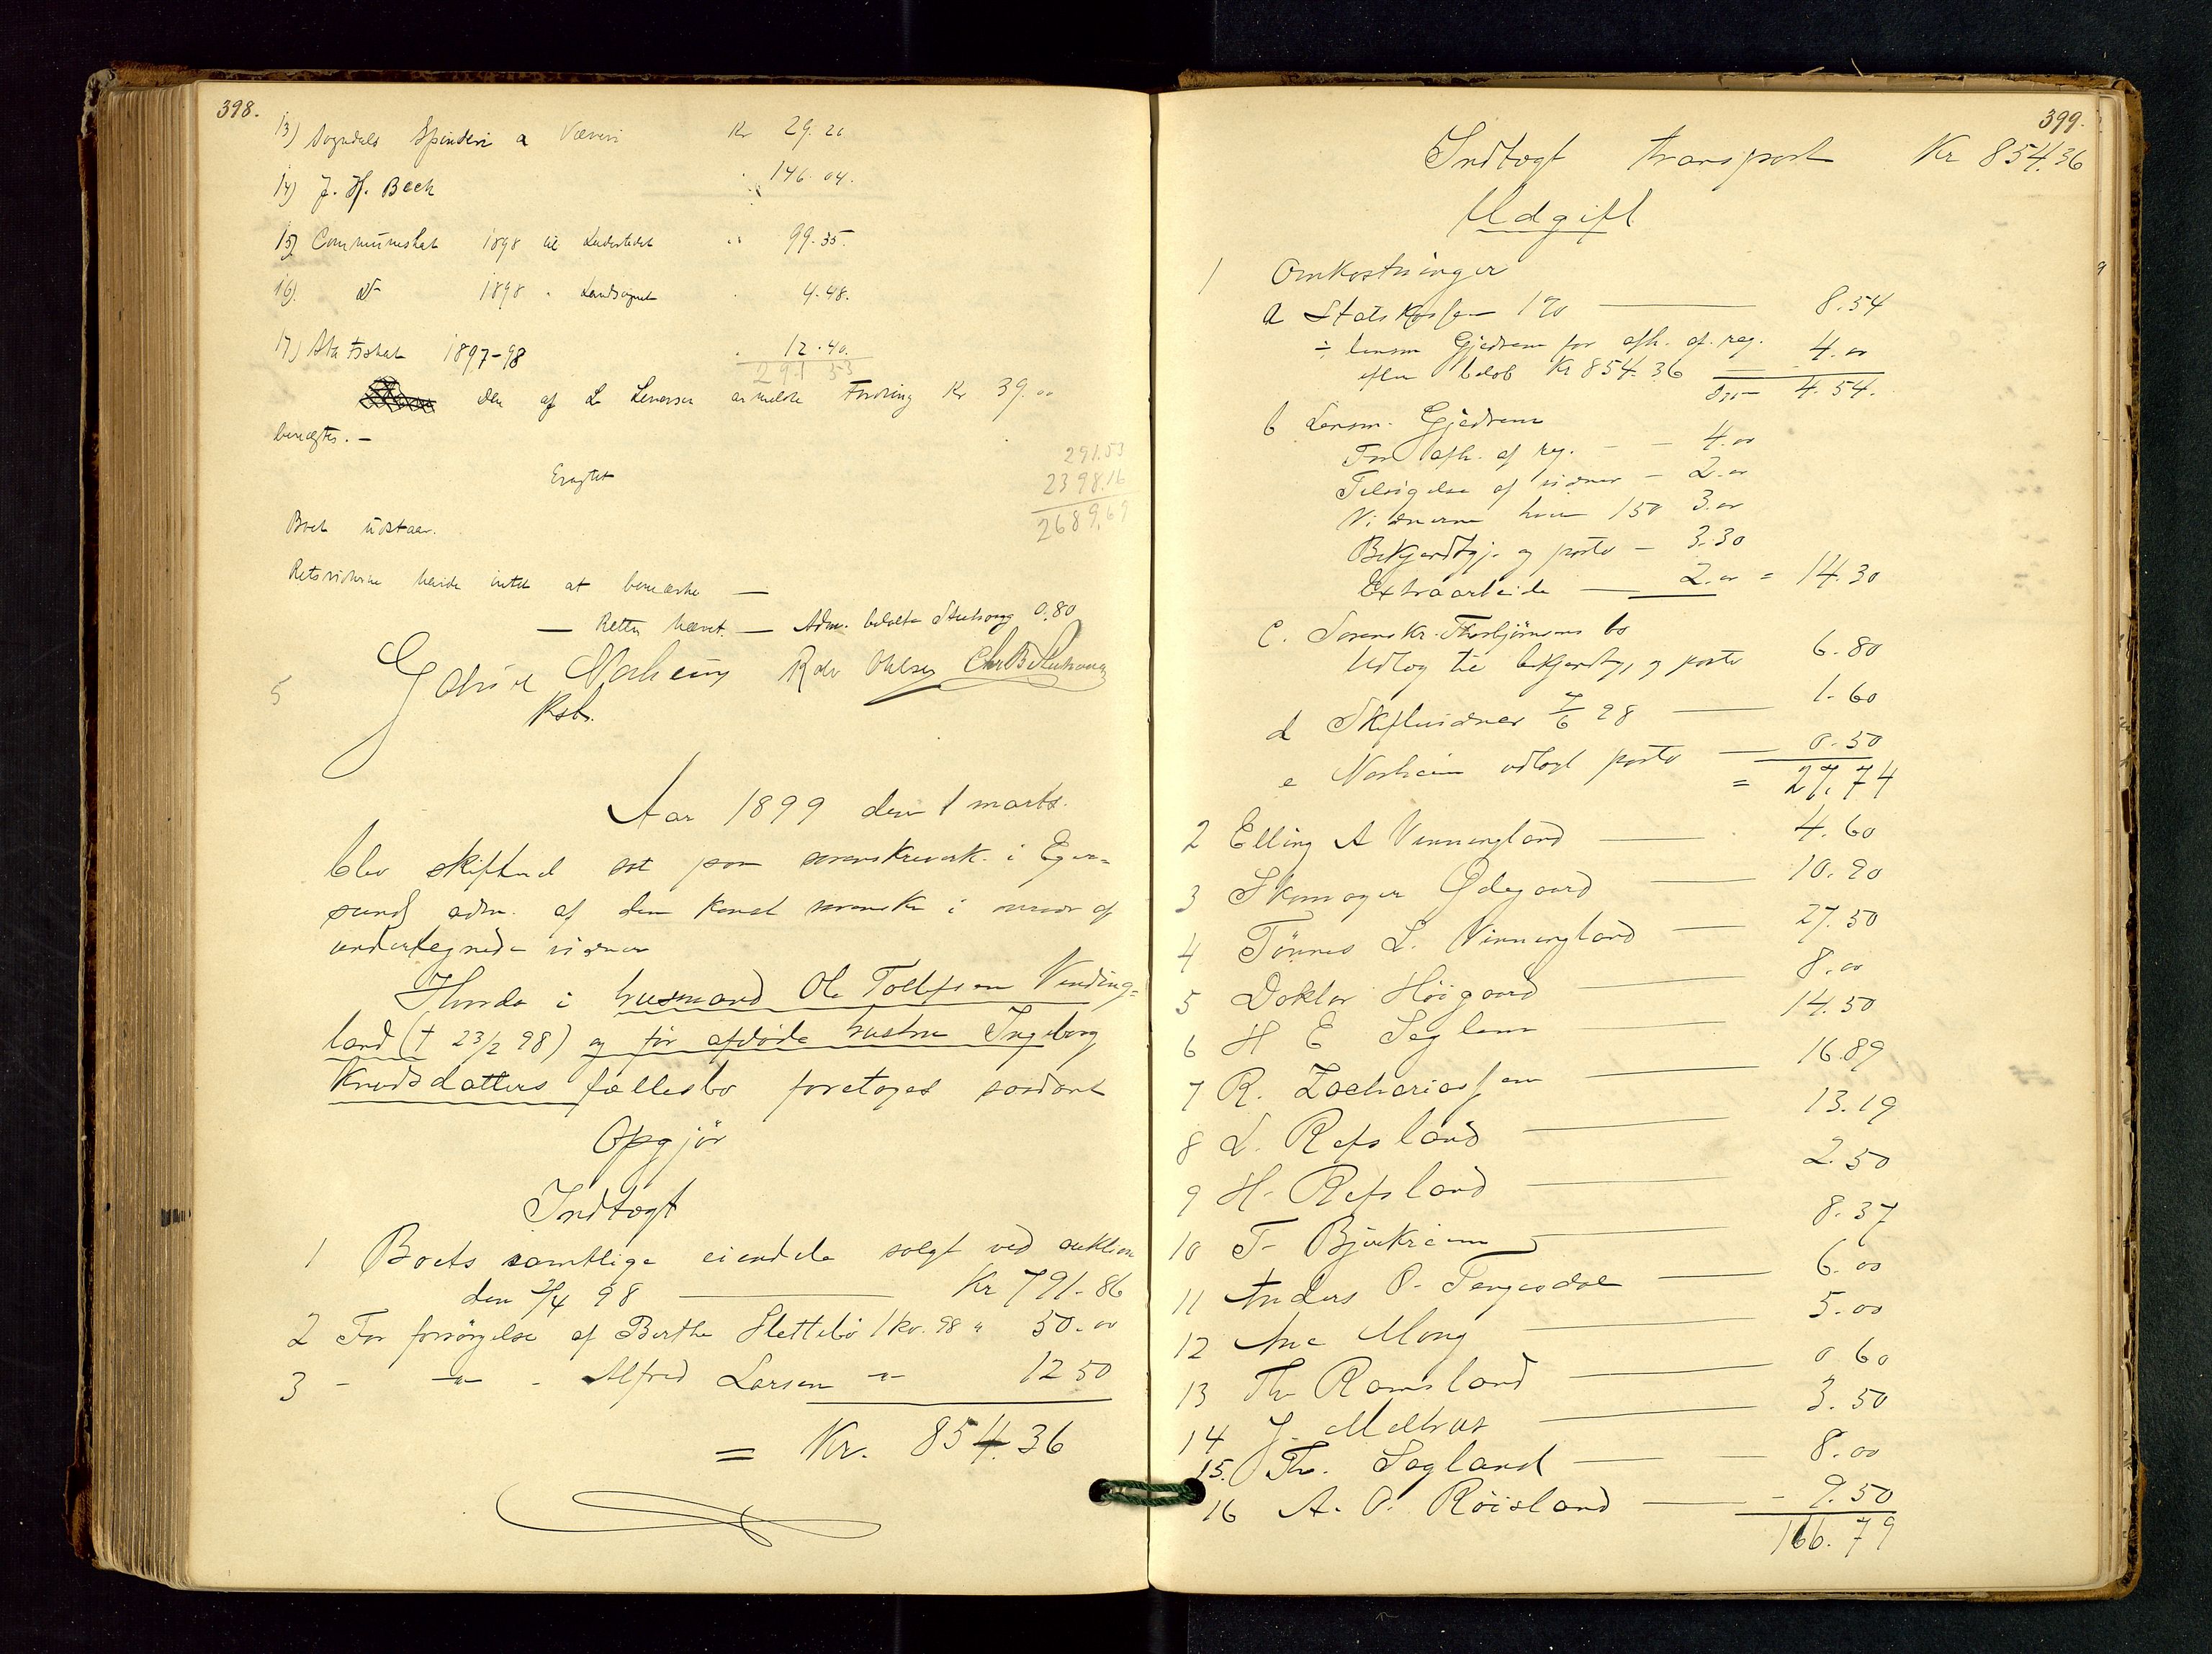 398.
13) Sogndals Spinderi & Væveri Kr 29.20
14) J. H. Beck " 146.04.
15) Communeskat 1898 til Ladestedet " 99.35.
16) do 1898 " Landsognet " 4.48.
17) Statsskat 1897-98 " 12.40.
291 53
den af L. Leversen anmeldte Fordring Kr 39.00
benægtes. —
291.53
Eragtet
2398.16
2689,69
Boet udstaar.
Retsvidnerne havde intet at bemærke —
— Retten hævet. — Adm. betalte Stuhaug 0.80
5
Norheim Rdv Ohlsen Chr B Stuhaug
Kst.
Aar 1899 den 1 marts.
blev skifteret sat paa sorenskriverk. i Eger=
sund adm. af den konst sorenskr i overvær af
undertegnede vidner
Hvorda i husmand Ole Tollefsen Vinding=
land († 23/2 98) og før afdøde hustru Ingeborg
Knudsdatters fællesbo foretoges saadant
Opgjör
Indtægt
1 Boets samtlige eiendele solgt ved auktion
den 2/4 98 — Kr 791.86
2 For forsörgelse af Berthe Slettebö 1 kv. 98 " 50.00
3 - -"- - Alfred Larsen -"- 12 50
= Kr. 854.36
399.
Indtægt transport Kr 854.36
Udgift
1 Omkostninger
a Statskassen 1% — 8.54
÷ lensm Gjedrem for afh. af reg.
4.00
efter beløb Kr 854.36 —
4.54.
b Lensm. Gjedrem
For afh. af reg. - - 4.00
Tilsigelse af vidner - 2.00
Vidnerne hver 150 3.00
Bekjendtgj. og porto - 3.30
Extraarbeide — 2.00 = 14.30
c. Sorenskr. Thorbjörnsens bo
Udlæg til bekjendtgj. og porto 6.80
d Skiftevidner 7/6 98 — 1.60
e Norheim udlagt porto — 0.50
= 27.74
2 Elling A Vinningland — 4.60
3 Skomager Ødegaard — 10.90
4 Tönnes L. Vinningland — 27.50
5 Doktor Höigaard — 8.00
6 H E Seglem — 14.50
7 R. Zachariassen — 16.89
8 L. Refsland — 13.19
9 H. Refsland — 2.50
10 T. Bjerkreim — 8.37
11 Anders O. Tengesdal — 6.00
12 Ane Mong — 5.00
13 Th Ramsland — 0 60
14 J. Melhus — 3.50
15. Th. Sagland — 8.00
16 A. O. Röisland — 9.50
166.79